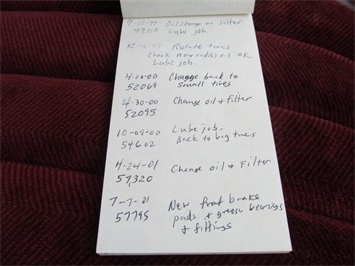 Oil change & Filter
Lube job
Rotate tires
Lube job.
4-20-00 Change back to
52069 small tires
4-30-00 Change oil & filter
52095
10-09-00 Lube job.
54602 Back to big tires
4-24-01 Change oil & Filter
57,320
7-7-01 New front brake
57795 pads & grease bearings
& fittings